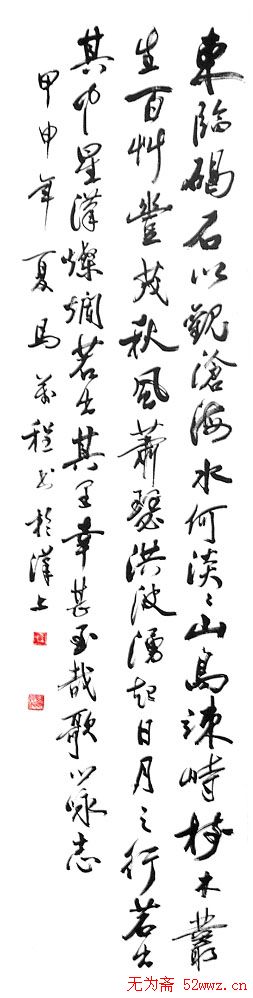 東臨碣石以觀滄海水何淡〻山島竦峙樹木叢
生百艸豐茂秋風蕭瑟洪波湧起日月之行若出
其中星漢燦爛若出其里幸甚至哉歌以咏志
甲申年夏馬萬程书於漢上
无为斋 52wwz.cn